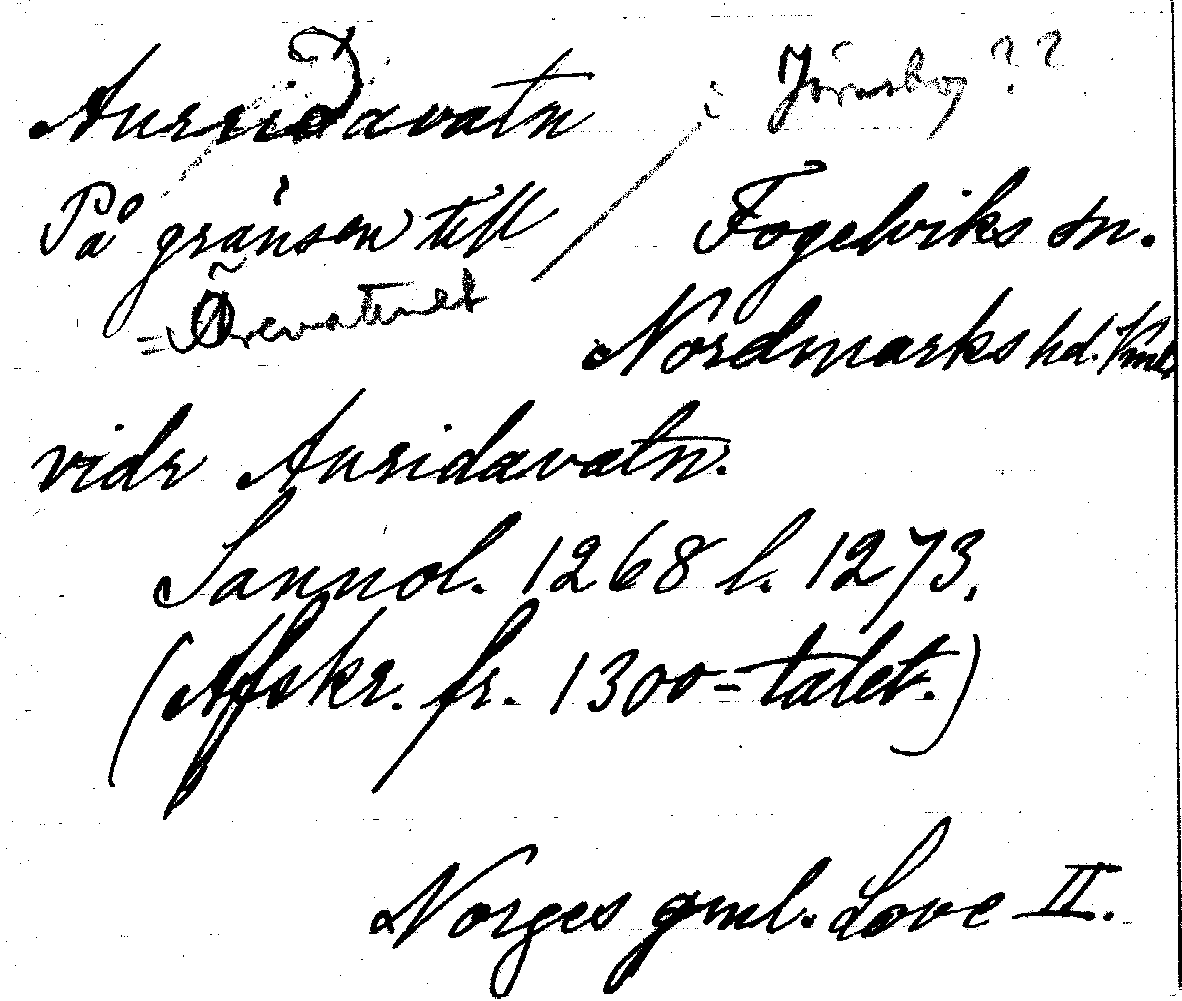 Aursidavatn
Järnskog ??
På gränsen till
Fogelviks sn.
= Örevatnet
Nordmarks hd. Vml.
vidr Aursidavatn.
Sannol. 1268 l. 1273.
(Afskr. fr. 1300-talet.)
Norges gml. Love II.